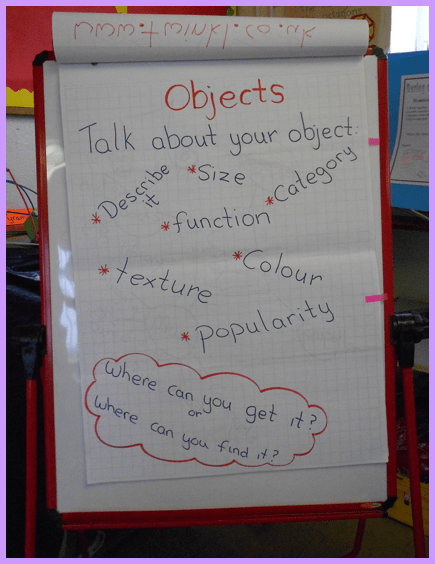 Objects
Talk about your object:
* Describe
it
* Size
* Category
* function
* texture
* Colour
* popularity
Where can you get it?
or
Where can you find it?